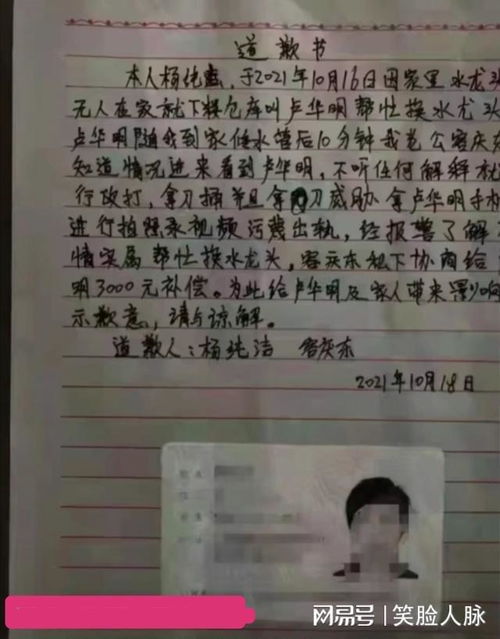 道歉书
本人杨纯洁，于2021年10月16日因家里水龙头
无人在家就下粮仓库叫卢华明帮忙换水龙头
卢华明随我到家修水管后10分钟我老公容庆东
知道情况进来看到卢华明，不听任何解释就
行攻打，拿刀捅并且拿刀威胁拿卢华明手机
进行拍照录视频污蔑出轨，经报警了解
情实属帮忙换水龙头，容庆东私下协商给
明3000元补偿。为此给卢华明及家人带来影响
示歉意，请与谅解。
道歉人：杨纯洁 容庆东
2021年10月18日
网易号 | 笑脸人脉